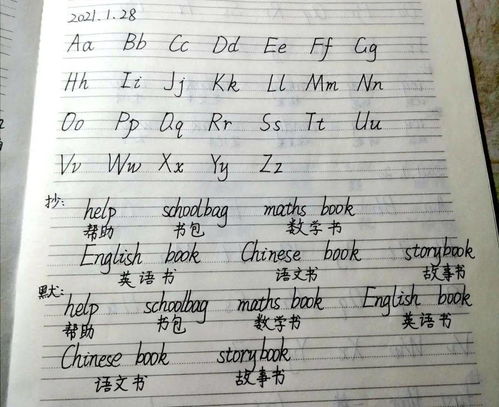 2021.1.28
Aa Bb Cc Dd Ee Ff Gg
Hh Ii Jj Kk Ll Mm Nn
Oo Pp Qq Rr Ss Tt Uu
Vv Ww Xx Yy Zz
抄: help schoolbag maths book
帮助 书包 数学书
English book Chinese book storybook
英语书 语文书 故事书
默: help schoolbag maths book English book
帮助 书包 数学书 英语书
Chinese book storybook
语文书 故事书